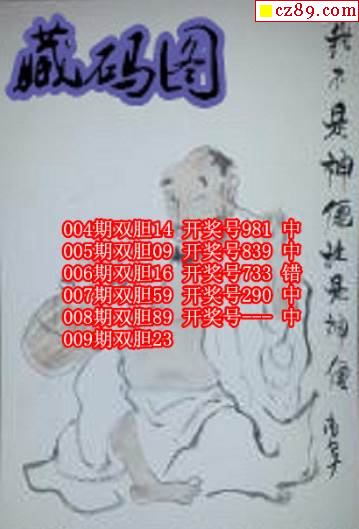 cz89.com
藏码图
我不是神僊谁是神僊
004期双胆14 开奖号981 中
005期双胆09 开奖号839 中
006期双胆16 开奖号733 错
007期双胆59 开奖号290 中
008期双胆89 开奖号--- 中
009期双胆23